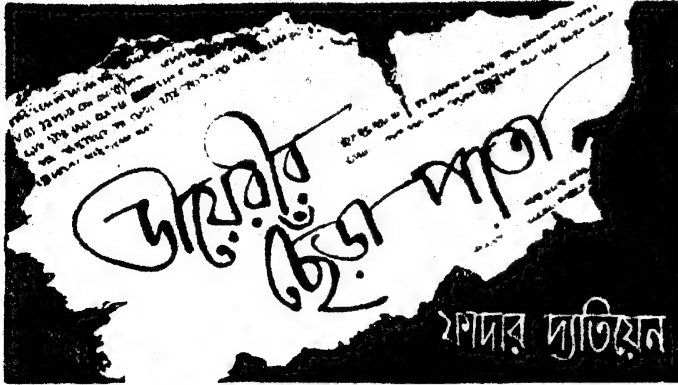 ডায়েরীর
ছেঁড়া পাতা
ফাদার দ্যতিয়েন